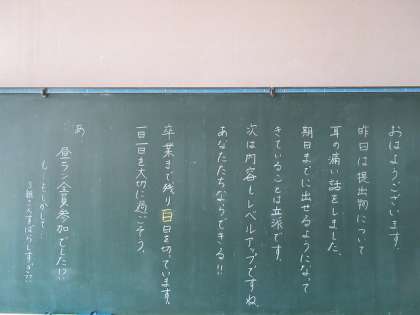 おはようございます。
昨日は提出物について
耳の痛い話をしました。
期日までに出せるようになって
きていることは立派です。
次は内容もレベルアップですね。
あなたたちならできる!!
卒業まで残り 日を切っています。
一日一日を大切に過ごそう。
あ
昼ラン全員参加でした!?
もしかして
すばらしすぎ??